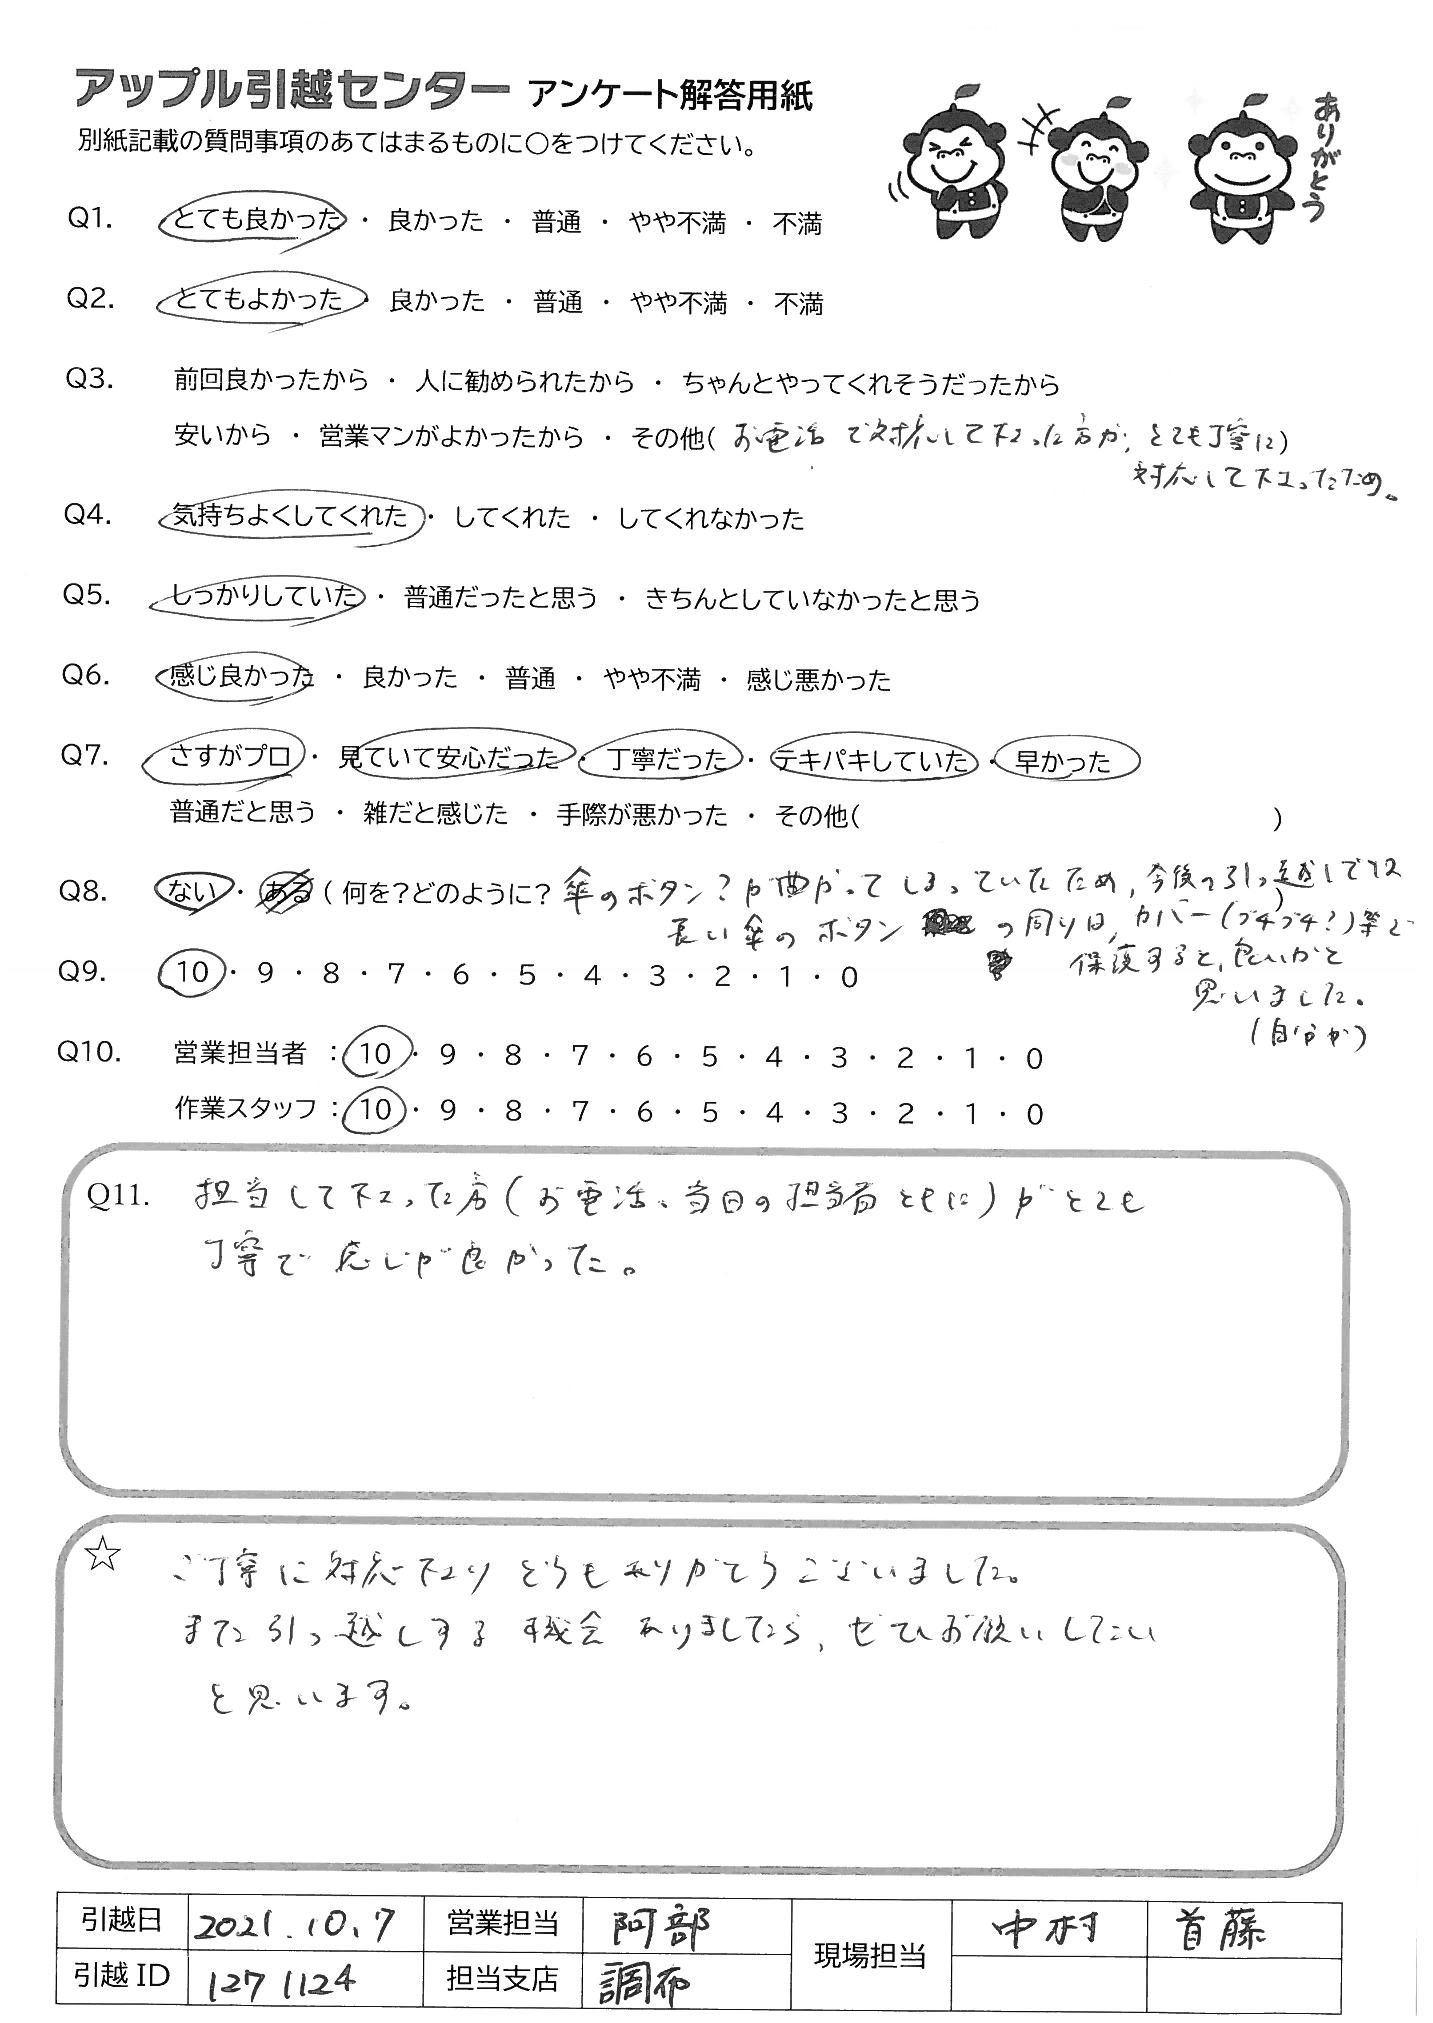 アップル引越センター アンケート解答用紙
別紙記載の質問事項のあてはまるものに○をつけてください。
ありがとう
Q1. とても良かった ・ 良かった ・ 普通 ・ やや不満 ・ 不満
Q2. とてもよかった ・ 良かった ・ 普通 ・ やや不満 ・ 不満
Q3. 前回良かったから ・ 人に勧められたから ・ ちゃんとやってくれそうだったから
安いから ・ 営業マンがよかったから ・ その他( お電話で対応して下さった方が、とても丁寧に)
対応して下さったため。
Q4. 気持ちよくしてくれた ・ してくれた ・ してくれなかった
Q5. しっかりしていた ・ 普通だったと思う ・ きちんとしていなかったと思う
Q6. 感じ良かった ・ 良かった ・ 普通 ・ やや不満 ・ 感じ悪かった
Q7. さすがプロ ・ 見ていて安心だった ・ 丁寧だった ・ テキパキしていた ・ 早かった
普通だと思う ・ 雑だと感じた ・ 手際が悪かった ・ その他( )
Q8. ない ・ ある ( 何を？どのように？ 傘のボタン？が曲がってしまっていたため、今後の引っ越しでは )
長い傘のボタン の周りは、カバー(プチプチ？)等で
保護すると、良いかと
思いました。
(自分が)
Q9. 10 ・ 9 ・ 8 ・ 7 ・ 6 ・ 5 ・ 4 ・ 3 ・ 2 ・ 1 ・ 0
Q10. 営業担当者 ： 10 ・ 9 ・ 8 ・ 7 ・ 6 ・ 5 ・ 4 ・ 3 ・ 2 ・ 1 ・ 0
作業スタッフ ： 10 ・ 9 ・ 8 ・ 7 ・ 6 ・ 5 ・ 4 ・ 3 ・ 2 ・ 1 ・ 0
Q11. 担当して下さった方(お電話、当日の担当者ともに)がとても
丁寧で感じが良かった。
☆ ご丁寧に対応下さりどうもありがとうございました。
また引っ越しする機会ありましたら、ぜひお願いしたい
と思います。
引越日 2021.10.7 営業担当 阿部 現場担当 中村 首藤
引越ID 1271124 担当支店 調布